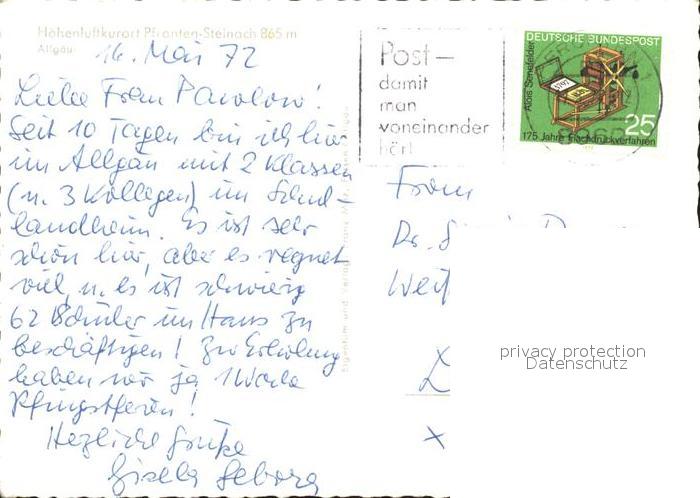 Höhenluftkurort Pfronten-Steinach 865 m
Allgäu
16. Mai 72
Liebe Frau Pawlow!
Seit 10 Tagen bin ich hier
im Allgäu mit 2 Klassen
(u. 3 Kollegen) im Schul-
landheim. Es ist sehr
schön hier, aber es regnet
viel, u. es ist schwierig
62 Schüler im Haus zu
beschäftigen! Zur Erholung
haben wir ja 1 Woche
Pfingstferien!
Herzliche Grüße
Gisela
Post –
damit
man
voneinander
hört
DEUTSCHE BUNDESPOST
Alois Senefelder
25
175 Jahre Flachdruckverfahren
Frau
Dr.
Eigentum und Verlag
privacy protection
Datenschutz